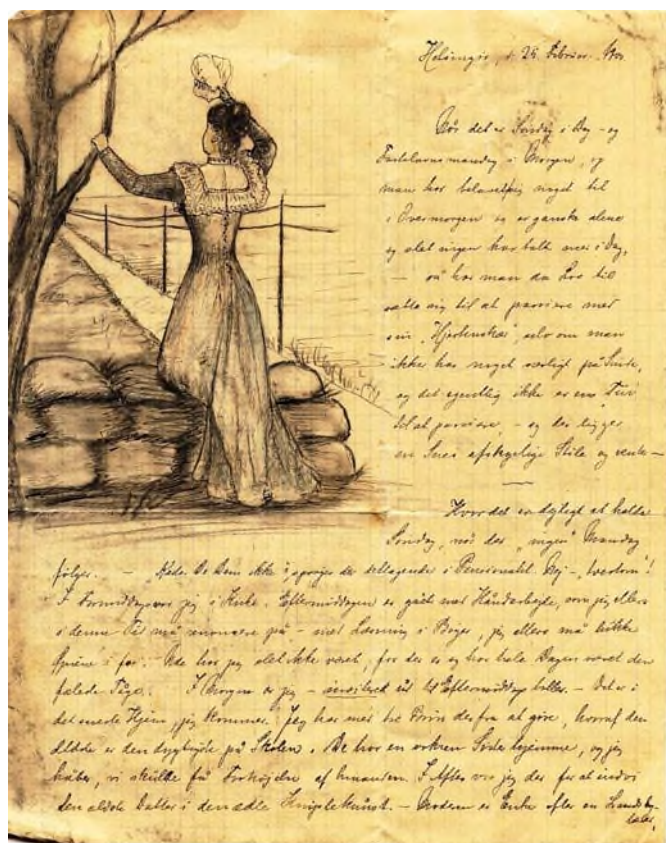 Helsingør, d. 25. Februar
Når det er Søndag i Dag – og
Fastelavnsmandag i Morgen, og
man har belavet sig noget til
i Overmorgen og er ganske alene
og slet ingen har talt med i Dag,
– så har man da Lov til
sætte sig til at passiare med
sin "Hjertenskær", selv om man
ikke har noget særligt på Sinde,
og det egentlig ikke er ens Tur
til at passiare, – og der ligger
en Snes afskyelige Stile og venter –
Hvor det er dejligt at holde
Søndag, når der "ingen" Mandag
følger. – Keder De Dem ikke i Pensionatet. Nej –
I Formiddags var jeg i Kirke. Eftermiddagen er gået med Håndarbejde, som jeg ellers
i denne Tid må renoncere på – med Læsning i Bøger, jeg ellers må lukke
Øjnene i for. Ude har jeg slet ikke været, for der er og har hele Dagen været den
fæleste Tåge. I Morgen er jeg – inviteret ud til Eftermiddag – Det er i
det Hjem, jeg kommer. Jeg har med tre Børn derfra at gøre, hvoraf den
ældste er den dygtigste på Skolen. De har en voksen Søster hjemme, og jeg
håber, vi skulde få Fornøjelse af hinanden. I Aftes var jeg der for at indvi
den ældste Datter i den ædle Kniplekunst. – Moderen er Enke efter en